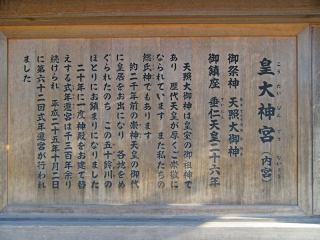 皇大神宮(内宮)
こうたい
ないくう
御祭神 天照大御神
御鎮座 垂仁天皇二十六年
天照大御神は皇室の御祖神で
あり 歴代天皇が厚くご崇敬に
なられています また私たちの
総氏神でもあります
約二千年前の崇神天皇の御代
に皇居をお出になり 各地をめ
ぐられたのち この五十鈴川の
ほとりにお鎮まりになりました
二十年に一度神殿をお建て替
えする式年遷宮は千三百年余り
続けられ 平成二十五年十月二日
に第六十二回式年遷宮が行われ
ました